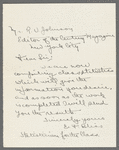 Mr. R. U. Johnson,
Editor of the Century Magazine
New York City
Dear Sir:
I am now
completing class statistics
which will give the
information you desire,
and as soon as the work
is completed I will send
you the results.
Sincerely yours,